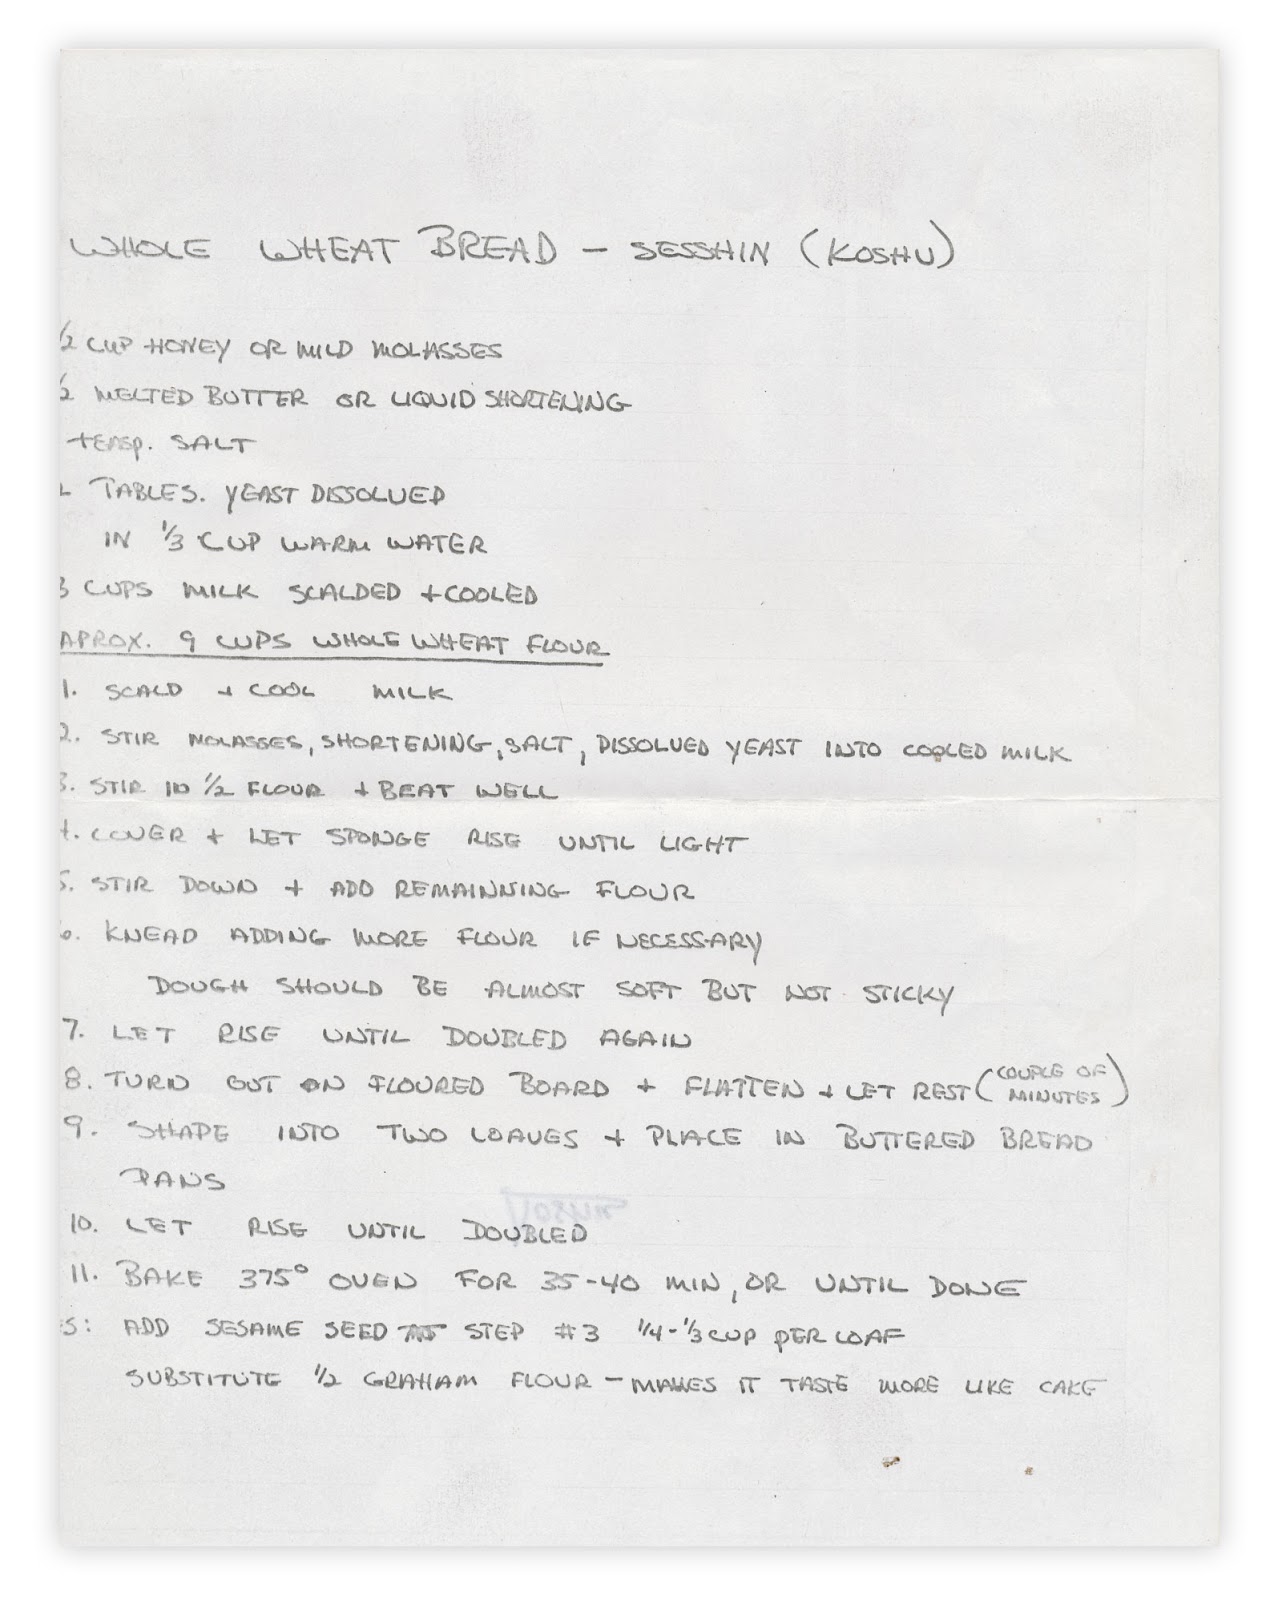 WHOLE WHEAT BREAD - SESSHIN (KOSHU)
1/2 CUP HONEY OR MILD MOLASSES
1/2 MELTED BUTTER OR LIQUID SHORTENING
TEASP. SALT
TABLES. YEAST DISSOLVED
IN 1/3 CUP WARM WATER
3 CUPS MILK SCALDED + COOLED
APROX. 9 CUPS WHOLE WHEAT FLOUR
1. SCALD + COOL MILK
2. STIR MOLASSES, SHORTENING, SALT, DISSOLVED YEAST INTO COOLED MILK
3. STIR IN 1/2 FLOUR + BEAT WELL
4. COVER + LET SPONGE RISE UNTIL LIGHT
5. STIR DOWN + ADD REMAINNING FLOUR
6. KNEAD ADDING MORE FLOUR IF NECESSARY
DOUGH SHOULD BE ALMOST SOFT BUT NOT STICKY
7. LET RISE UNTIL DOUBLED AGAIN
8. TURN OUT ON FLOURED BOARD + FLATTEN + LET REST (COUPLE OF MINUTES)
9. SHAPE INTO TWO LOAVES + PLACE IN BUTTERED BREAD
PANS
10. LET RISE UNTIL DOUBLED
11. BAKE 375° OVEN FOR 35-40 MIN, OR UNTIL DONE
ES: ADD SESAME SEED STEP #3 1/4-1/3 CUP PER LOAF
SUBSTITUTE 1/2 GRAHAM FLOUR - MAKES IT TASTE MORE LIKE CAKE